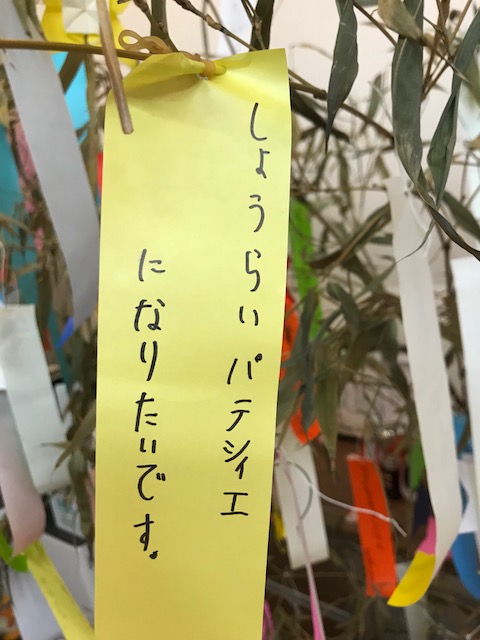 しょうらいパテシィエ
になりたいです.